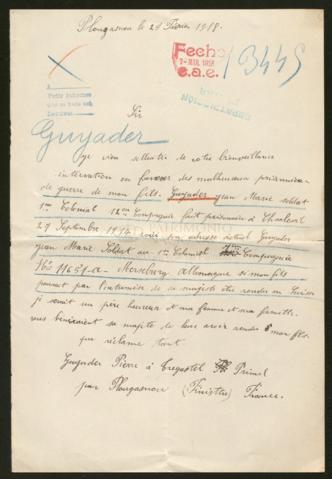 Plougasnou le 21 Février 1918.
Fecho
7-MAR.1918
e.a.e.
13445
Sir
Guyader
je viens solliciter de votre bienveillance
intervention en faveur des malheureux prisonniers
de guerre de mon fils. Guyader jean Marie soldat
1er Colonial 12me Compagnie fait prisonnier à
29 Septembre 1914 voici son adresse actuel Guyader
jean Marie Soldat au 1er Colonial Compagnie
11631-a- Merseburg Allemagne si mon fils
pouvait par de sa majesté être rendu en Suisse
je serait un père heureux et ma femme et ma famille
vous béniraient sa majesté de leur avoir rendu mon fils.
que réclame tant
Guyader Pierre à Tregastel Primel
par Plougasnou (Finistère) France.